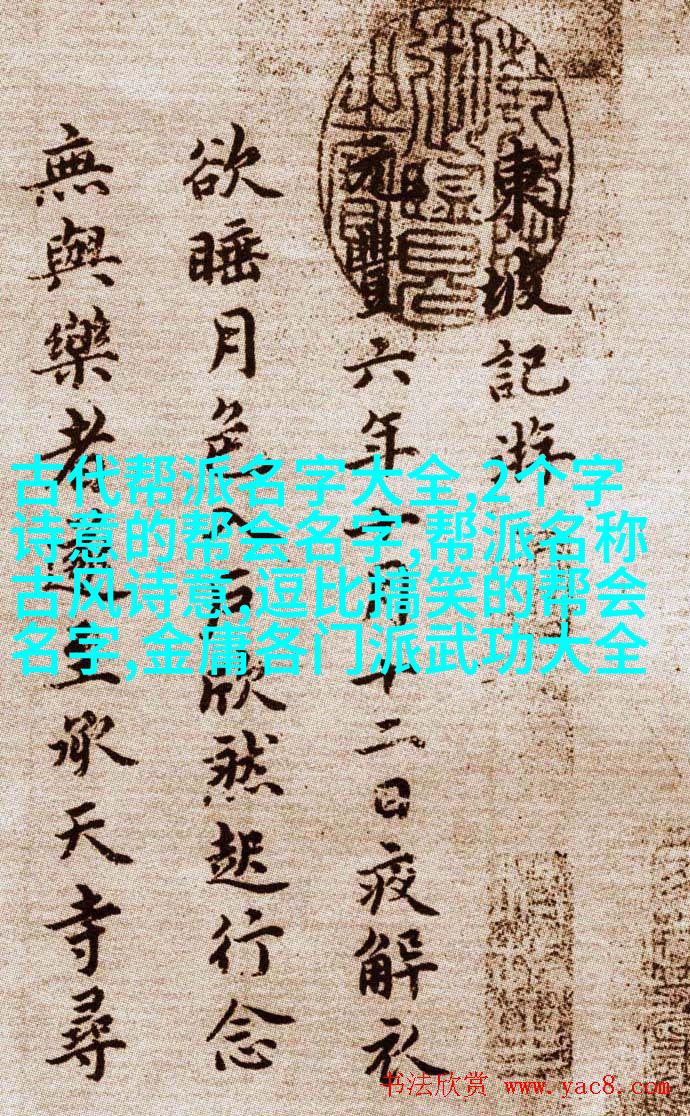 東坡記游
元豐六年十月十二日疲解衣
欲睡月色入户欣然起行念
無與樂者遂至承天寺尋
古代帮派名字大全,2个字
诗意的帮会名字,帮派名称
古风诗意,逗比搞笑的帮会
名字,金庸各门派武功大全
书法欣赏 www.yac8.com